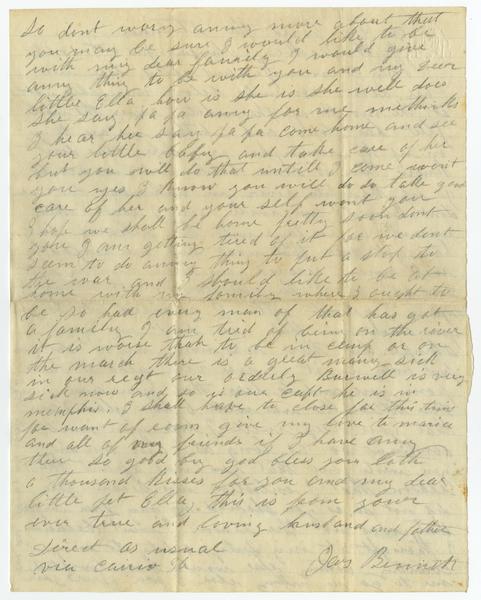 So dont worry anny more about that
you may be sure I would like to be
with my dear family I would give
anny thing to be with you and my dear
little Ella how is she is she well does
she say papa anny for me methinks
I hear her say papa come home and see
your little baby and take care of her
but you will do that untill I come wont
you yes I know you will do do take good
care of her and your self wont you
I hope we shall be home pretty soon dont
you I am getting tired of it for we dont
seem to do anny thing to put a stop to
the war and I should like to be at
home with my family where I ought to
be so had every man of that has got
a family I am tired of being on the river
it is worse than to be in camp or on
the march there is a great many sick
in our regt our orderly Burwell is very
sick now and so is our capt he is in
memphis. I shall have to close for this time
for want of room give my love to maria
and all of my friends if I have anny
there so good by god bless you both
a thousand kisses for you and my dear
little pet Ella, this is from your
ever true and loving husband and father
Direct as usual
via cairo Ill Jas Bennett